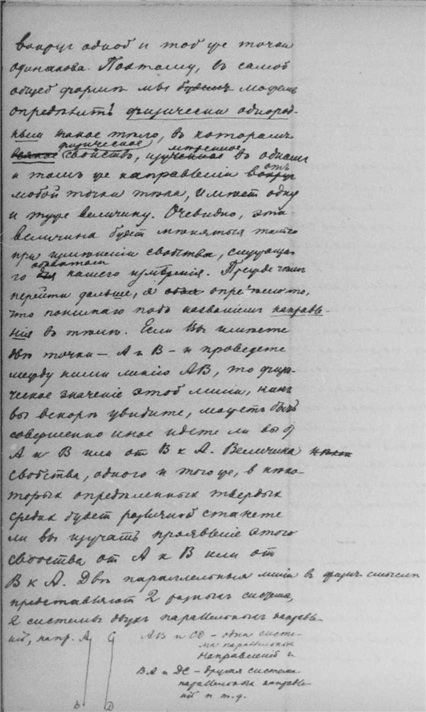 вокругъ одной и той же точки
одинакова. Поэтому, въ самой
общей форме мы можемъ
определить физически однород-
нымъ такое тело, въ которомъ
физическое
свойство, изученное въ одномъ
и томъ же направленіи вокругъ
любой точки тела, имеетъ одну
и ту же величину. Очевидно, эта
величина будетъ меняться только
при измененіи свойства, служаща-
го объектомъ нашего измеренія. Прежде чемъ
перейти дальше, я определю то,
что понимаю подъ названіемъ направле-
нія въ теле. Если Вы имеете
две точки — А и В — и проведете
между ними линію АВ, то физи-
ческое значеніе этой линіи, какъ
вы вскоре увидите, можетъ быть
совершенно иное идете ли вы отъ
А к В или от В к А. Величина
свойства, одного и того же, в неко-
торыхъ определенныхъ твердыхъ
средахъ будетъ различной станете
ли вы изучать проявленіе этого
свойства от А к В или от
В к А. Две параллельныя линіи в физич. смысле
представляютъ 2 разныхъ системы,
2 системы двухъ параллельныхъ направле-
ній, напр. А С
В D
АВ и CD — одна систе-
ма параллельныхъ
направленій и
ВА и DC — другая система
параллельныхъ направле-
ній и т. д.